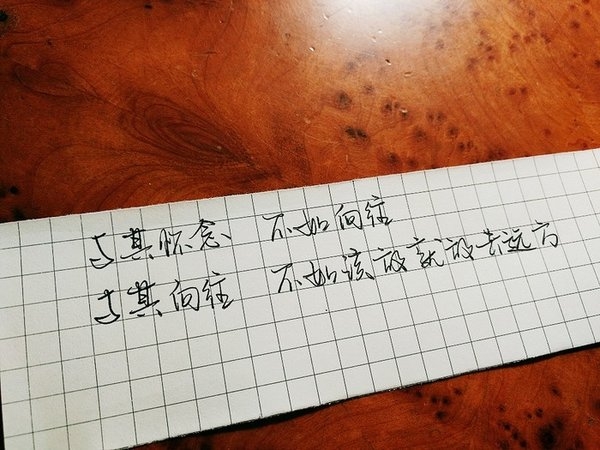 与其怀念 不如向往
与其向往 不如该放就放去远方